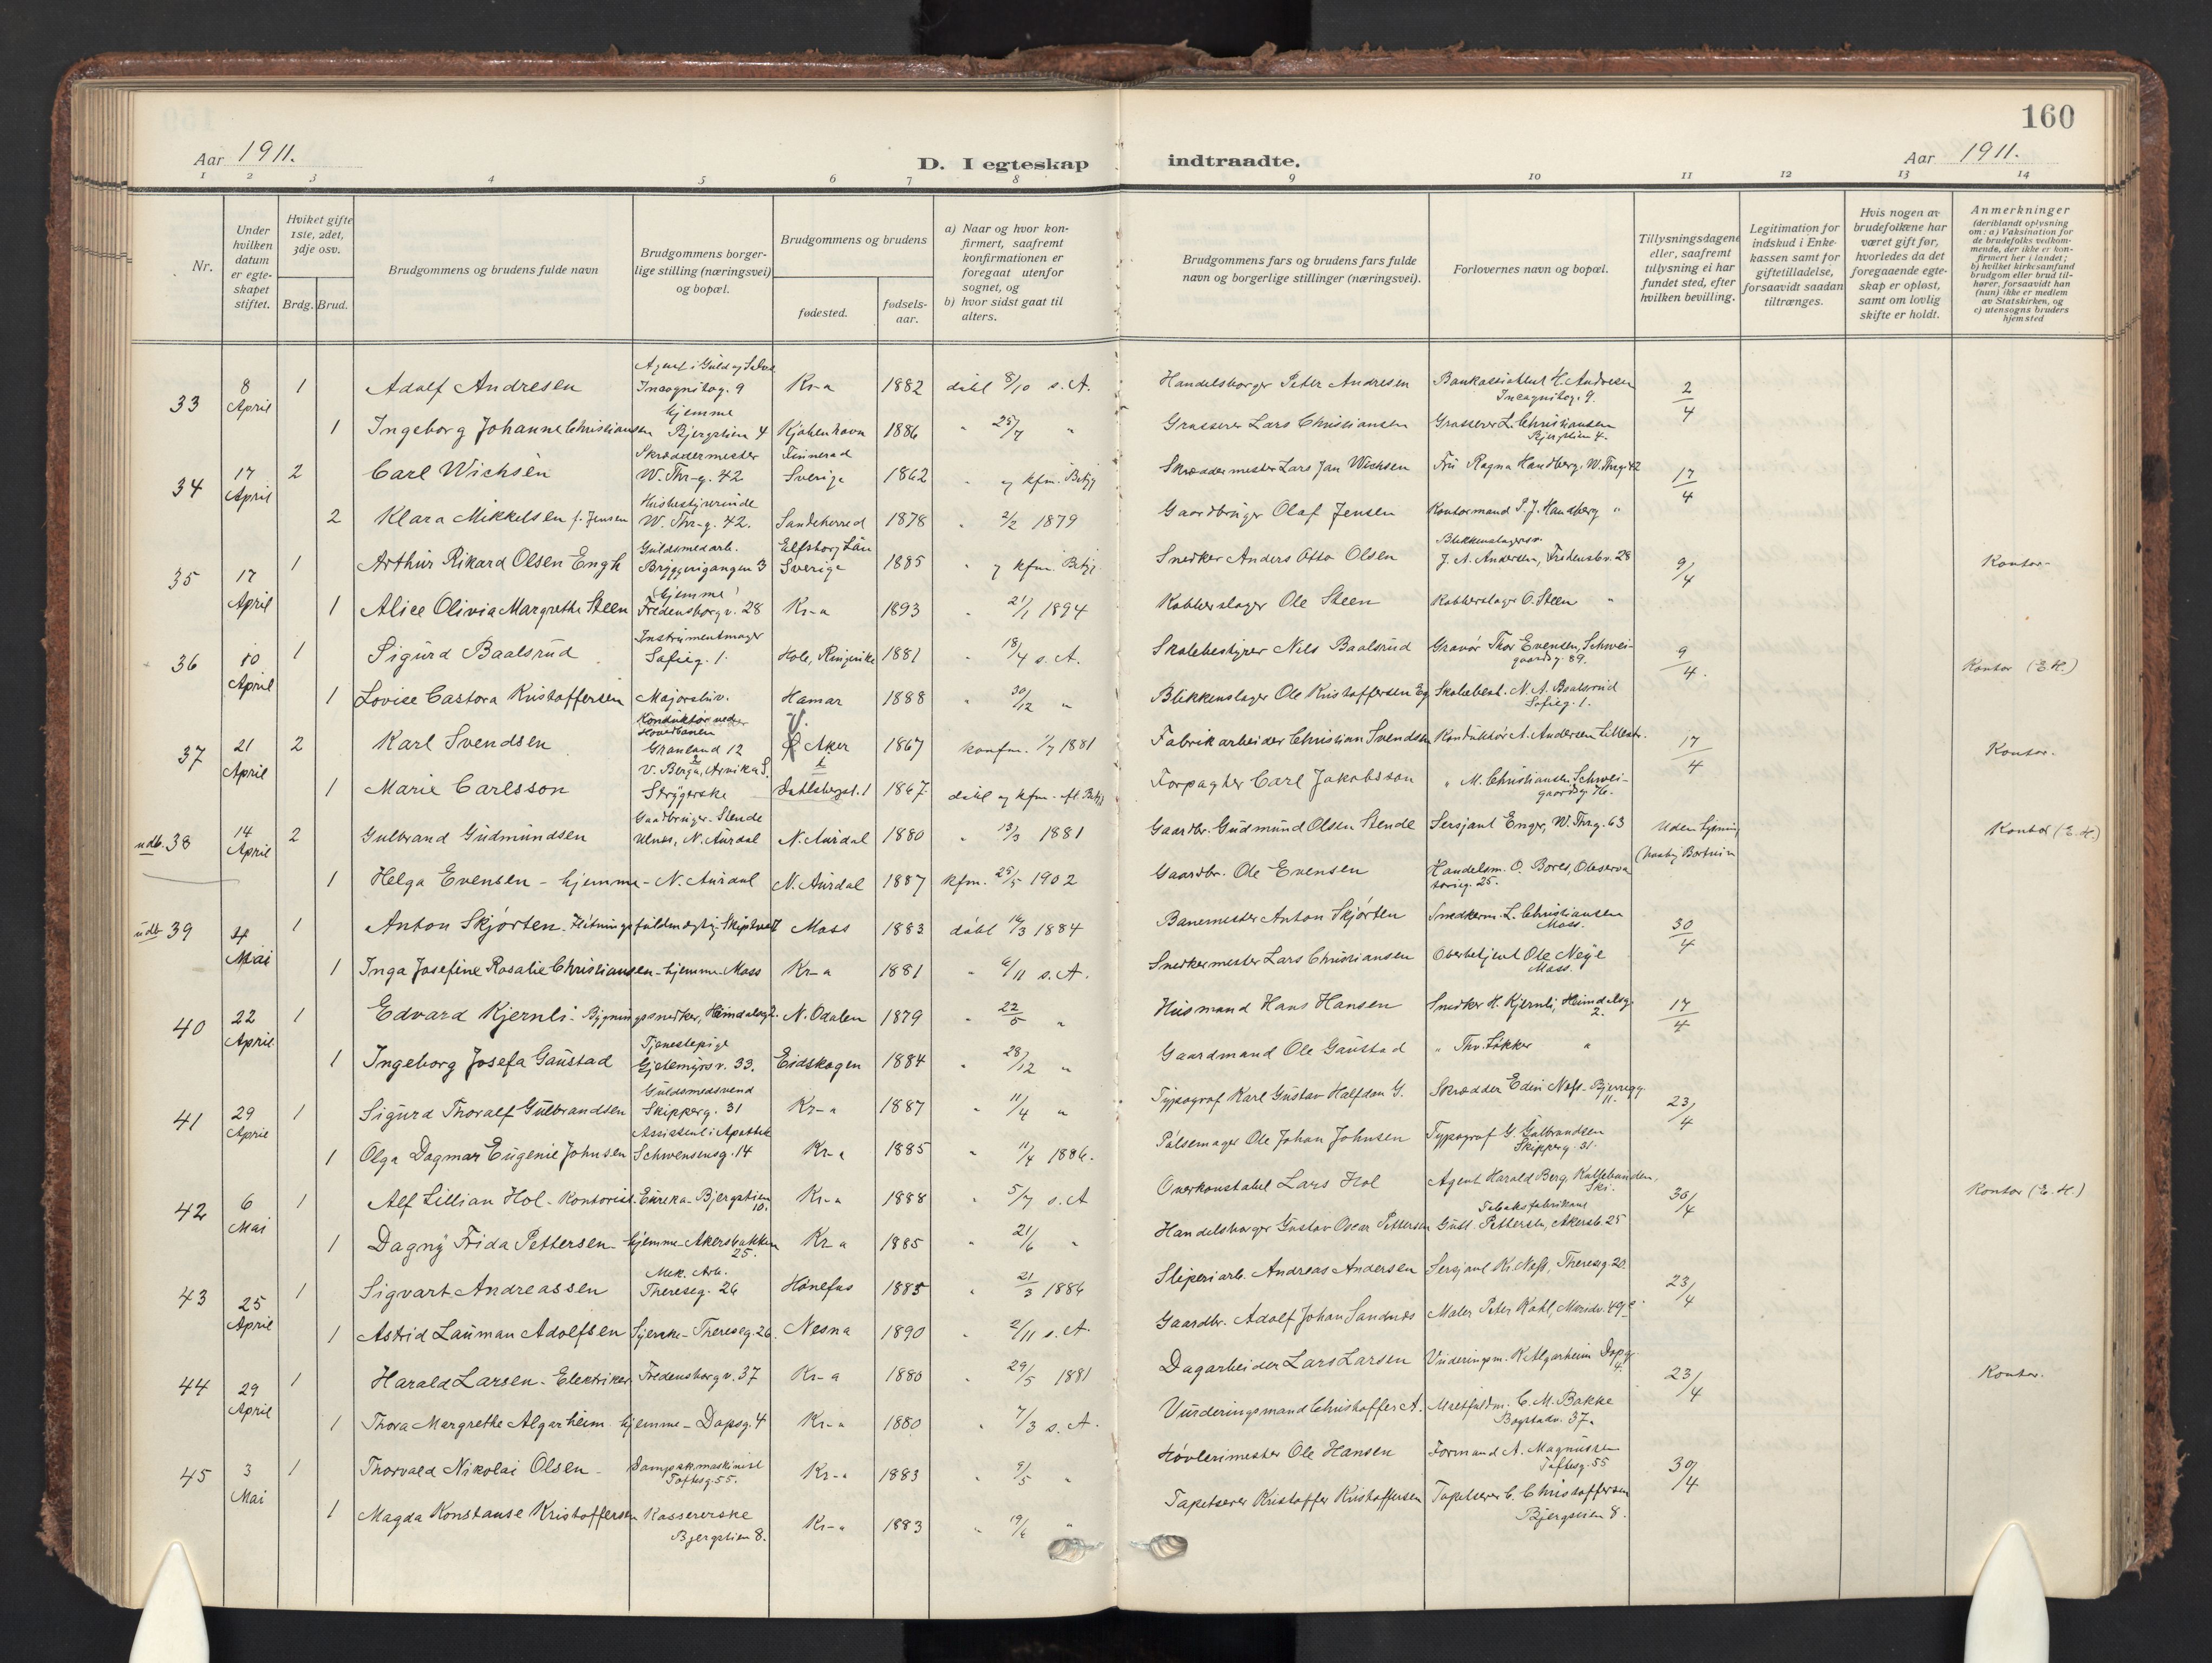 160
Aar 1911.
D. I egteskap indtraadte.
Aar 1911.
1 2 3 4 5 6 7 8 9 10 11 12 13 14
Nr.
Under hvilken datum er egteskapet stiftet.
Hvilket gifte 1ste, 2det, 3dje osv.
Brdg. Brud.
Brudgommens og brudens fulde navn
Brudgommens borgerlige stilling (næringsvei) og bopæl.
Brudgommens og brudens
fødested.
fødselsaar.
a) Naar og hvor konfirmert, saafremt konfirmationen er foregaat utenfor sognet, og
b) hvor sidst gaat til alters.
Brudgommens fars og brudens fars fulde navn og borgerlige stillinger (næringsvei).
Forlovernes navn og bopæl.
Tillysningsdagene eller, saafremt tillysning ei har fundet sted, efter hvilken bevilling.
Legitimation for indskud i Enkekassen samt for giftetilladelse, forsaavidt saadan tiltrænges.
Hvis nogen av brudefolkene har været gift før, hvorledes da det foregaaende egteskap er opløst, samt om lovlig skifte er holdt.
Anmerkninger (deriblandt oplysning om: a) Vaksination for de brudefolks vedkommende, der ikke er konfirmert her i landet; b) hvilket kirkesamfund brudgom eller brud tilhører, forsaavidt han (hun) ikke er medlem av Statskirken, og c) utensogns bruders hjemsted
33 8 April 1 Adolf Andresen Agent i Guld og Sølv Incognitog. 9 Kr-a 1882 døbt 8/10 s. A. Handelsborger Peter Andresen Bankassistent H. Andresen Incognitog. 9. 2/4
1 Ingeborg Johanne Christiansen hjemme Bjergstien 4 Kjøbenhavn 1886 " 25/7 " Grosserer Lars Christiansen Grosserer L. Christiansen Bjergstien 4.
34 17 April 2 Carl Wichsèn Skræddermester W. Thr-g. 42 Finnerad Sverige 1862 " og kfm. Betyg Skræddermester Lars Jan Wichsen Frú Ragna Handberg, W. Thrg. 42 17/4
2 Klara Mikkelsen f. Jensen Husbestyrerinde W. Thr-g. 42. Sandeherred 1878 " 2/2 1879 Gaardbruger Olaf Jensen Kontormand P. J. Handberg "
35 17 April 1 Arthur Rikard Olsen Engh Guldsmedarb. Bryggerigangen 3 Elfsborg Län Sverige 1885 " og kfm. Betyg Snedker Anders Otto Olsen Blikkenslagersv. J. A. Andersen, Fredensbv. 28 9/4 Kontor.
1 Alice Olivia Margrethe Steen hjemme Fredensborgv. 28 Kr-a 1893 " 21/1 1894 Kobberslager Ole Steen Kobberslager O. Steen "
36 10 April 1 Sigurd Baalsrud Instrumentmager Sofieg. 1. Hole, Ringerike 1881 " 18/4 s. A. Skolebestyrer Nils Baalsrud Gravør Thor Evensen, Schweigaardsg. 89. 9/4. Kontor (E. H.)
1 Lovise Castora Kristoffersen Majorstuv. Hamar 1888 " 30/12 " Blikkenslager Ole Kristoffersen Eg Skolebest. N. A. Baalsrud Sofieg. 1.
37 21 April 2 Karl Svendsen Konduktør ved Hovedbanen Grønland 12 Aker 1867 konfm. 1881 Fabrikarbeider Christian Svendsen Konduktør A. Andersen Lillestr. 17/4 Kontor.
1 Marie Carlsson V. Berga, Arvika S. Strygerske 1867 døbt og kfm. Forpagter Carl Jakobsson " M. Christiansen Schweigaardsg. 76.
udb. 38 14 April 2 Gulbrand Gudmundsen Gaardbruger Stende Ulnæs, N. Aurdal N. Aurdal 1880 " 13/3 1881 Gaardbr. Gudmund Olsen Stende Sersjant Enger, W. Thrg. 63 Uden lysning Kontor (E. H.)
1 Helga Evensen - hjemme - N. Aurdal N. Aurdal 1887 kfm. 25/5 1902 Gaardbr. Ole Evensen Handelsm. O. Bores, Observatorieg. 25.
udb 39 4 Mai 1 Anton Skjørten Fløtningsfuldmægtig Skiptvedt Moss 1883 døbt 16/3 1884 Banemester Anton Skjørten Snedkerm. L. Christiansen Moss. 30/4
1 Inga Josefine Rosalie Christiansen - hjemme. Moss Kr-a 1881 " 6/11 s. A. Snedkermester Lars Christiansen Overbetjent Ole Neye Moss.
40 22 April 1 Edvard Kjernli - Bygningssnedker, Heimdalsg. 2. N. Odalen 1879 " 22/5 " Husmand Hans Hansen Snedker H. Kjernli, Heimdalsg. 2. 17/4
1 Ingeborg Josefa Gaustad Tjenestepige Gjetemyrsv. 33. Eidskogen 1884 " 28/12 " Gaardmand Ole Gaustad " Thv. Løkker "
41 29 April 1 Sigurd Thoralf Gulbrandsen Guldsmedsvend Skipperg. 31 Kr-a 1887 " 11/4 " Typograf Karl Gustav Halfdan G. Skrædder Edin Næss - Bjerregg. 11. 23/4
1 Olga Dagmar Eugenie Johnsen Assistent i Apothek Schwensensg. 14 Kr-a 1885 " 11/4 1886. Pølsemager Ole Johan Johnsen Typograf G. Gulbrandsen Skipperg. 31.
42 6 Mai 1 Alf Lillian Hol - Kontorist Eureka - Bjergstien 10. Kr-a 1888 " 5/7 s. A Overkonstabel Lars Hol Agent Harald Berg, Kolbotnunden, Ski. 30/4 Kontor (E. H.)
1 Dagny Frida Pettersen - hjemme - Akersbakken 25. Kr-a 1885 " 21/6 " Handelsborger Gustav Oscar Pettersen Tobaksfabrikant Gust. Pettersen, Akersb. 25
43 25 April 1 Sigvart Andreassen Mek. Arb. Thereseg. 26 Hønefos 1885 " 21/3 1886 Sliperiarb. Andreas Andersen Sersjant Kr. Næss, Thereseg. 20. 23/4
1 Astrid Lauman Adolfsen Syerske - Thereseg. 26. Nesna 1890 " 2/11 s. A. Gaardbr. Adolf Johan Sandnes Maler Peter Kahl, Maridv. 49
44 29 April 1 Harald Larsen - Elektriker Fredensborgv. 37 Kr-a 1880 " 29/5 1881 Dagarbeider Lars Larsen Vurderingsm. K. Algarheim Dopsg. 4. 23/4 Kontor.
1 Thora Margrethe Algarheim hjemme - Dopsg. 4 Kr-a 1880 " 7/3 s. A. Vurderingsmand Christoffer A. C. M. Bakke Bogstadv. 37.
45 3 Mai 1 Thorvald Nikolai Olsen - Dampsk. maskinist Toftesg. 55. Kr-a 1883 " 9/5 " Høvlerimester Ole Hansen Formand A. Magnussen Toftesg. 55 30/4
1 Magda Konstanse Kristoffersen Kassererske Bjergstien 8. Kr-a 1883 " 19/6 " Tapetserer Kristoffer Kristoffersen Tapetserer C. Christoffersen Bjergstien 8.